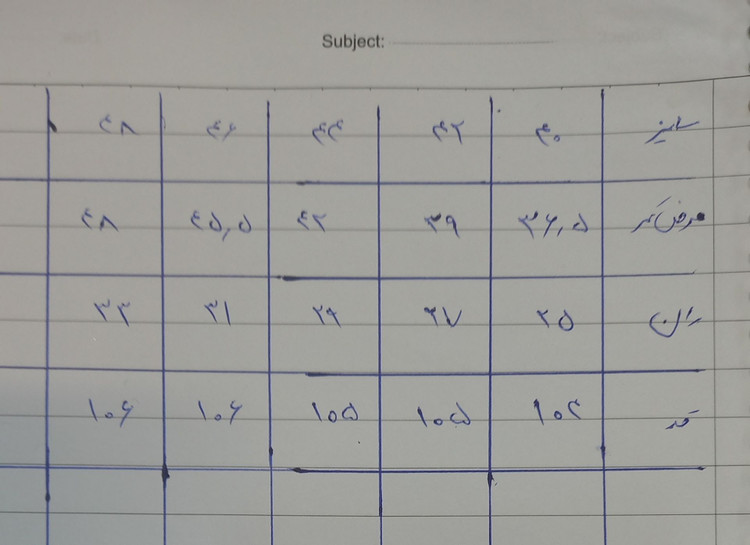 Subject:
سایز ۴۰ ۴۲ ۴۴ ۴۶ ۴۸
عرض کمر ۳۶,۵ ۳۹ ۴۲ ۴۵,۵ ۴۸
ران ۲۵ ۲۷ ۲۹ ۳۱ ۳۳
قد ۱۰۴ ۱۰۵ ۱۰۵ ۱۰۶ ۱۰۶